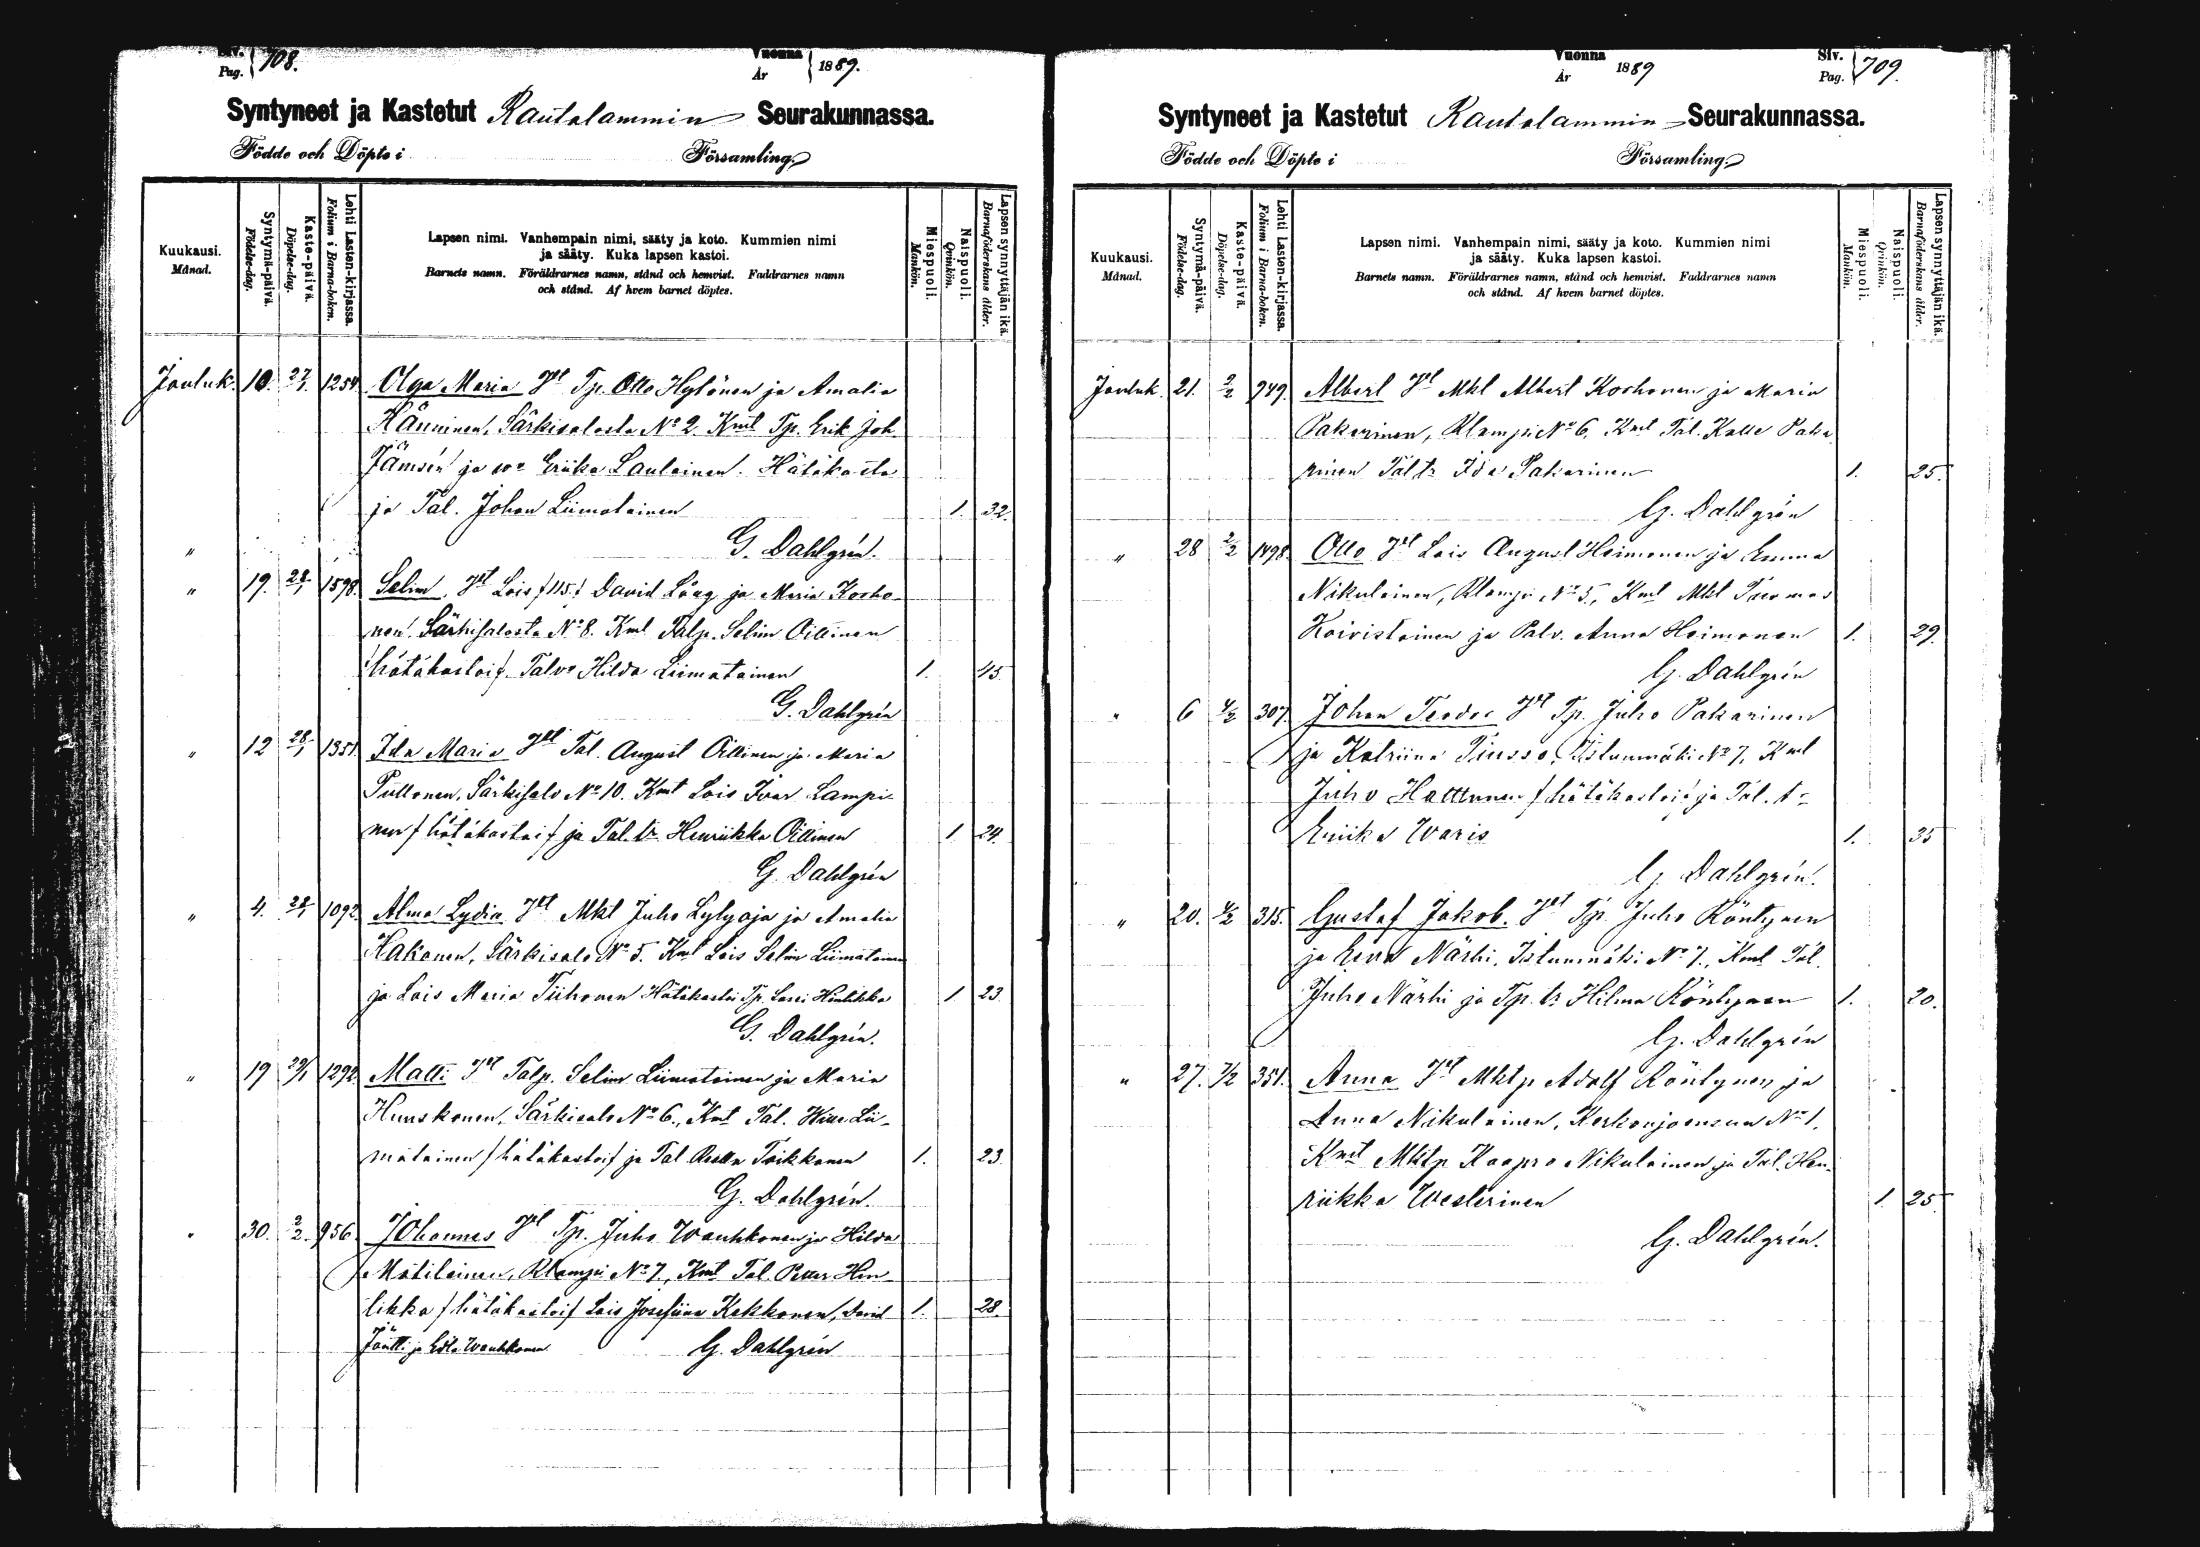 Siv.
Pag. 708.
Vuonna
År 1889.
Syntyneet ja Kastetut Rautalammin Seurakunnassa.
Födde och Döpte i Församling
Kuukausi.
Månad.
Syntymä-päivä.
Födelse-dag.
Kaste-päivä.
Döpelse-dag.
Lehti Lasten-kirjassa.
Folium i Barna-boken.
Lapsen nimi. Vanhempain nimi, sääty ja koto. Kummien nimi
ja sääty. Kuka lapsen kastoi.
Barnets namn. Föräldrarnes namn, stånd och hemvist. Faddrarnes namn
och stånd. Af hvem barnet döptes.
Miespuoli.
Mankön.
Naispuoli.
Qvinkön.
Lapsen synnyttäjän ikä.
Barnaföderskans ålder.
Jouluk. 10. 27/1 1254. Olga Maria Tp. Otto Hytönen ja Amalia
Hänninen, Särkisalosta No 2. Kmt Tp. Erik Joh.
Jämsén ja Eriika Laulainen. Hätäkaste
ja Tal. Johan Liimatainen 1. 32.
" G. Dahlgrén.
" 19. 28/1 1598. Selim Lois /115./ David Lång ja Maria Korho-
nen. Särkisalosta No 8. Kmt Talp. Selim Oittinen
/hätäkastoi/. Hilda Liimatainen 1. 45
G. Dahlgrén
" 12 28/1 1351. Ida Maria Tal. August Oittinen ja Maria
Puttonen, Särkisalo No 10. Kmt Lois Ivar Lampi-
nen /hätäkastoi/ ja Tal. tr Henriikka Oittinen 1 24.
G. Dahlgrén
" 4. 28/1 1092. Alma Lydia Mkl Juho Lylyoja ja Amalia
Hakonen, Särkisalo No 5. Kmt Lois Selim Liimatainen
ja Lois Maria Tiihonen Hätäkastoi Tp. Lassi Hintikka 1 23
G. Dahlgrén.
" 19 29/1 1292. Matti Talp. Selim Liimatainen ja Maria
Huuskonen, Särkisalo No 6., Kmt Tal. Wille Lii-
matainen /hätäkastoi/ ja Tal. Reetta Toikkanen 1. 23
G. Dahlgrén.
" 30. 2/2. 956. Johannes Tp. Juho Wauhkonen ja Hilda
Matilainen, Klampi No 7., Kmt Tal. Petter Hin-
tikka /hätäkastoi/ Lois Josefiina Kekkonen, David 1. 28.
Jäntti ja Edla Wauhkonen G. Dahlgrén
Vuonna
År 1889
Siv.
Pag. 709.
Syntyneet ja Kastetut Rautalammin Seurakunnassa.
Födde och Döpte i Församling.
Kuukausi.
Månad.
Syntymä-päivä.
Födelse-dag.
Kaste-päivä.
Döpelse-dag.
Lehti Lasten-kirjassa.
Folium i Barna-boken.
Lapsen nimi. Vanhempain nimi, sääty ja koto. Kummien nimi
ja sääty. Kuka lapsen kastoi.
Barnets namn. Föräldrarnes namn, stånd och hemvist. Faddrarnes namn
och stånd. Af hvem barnet döptes.
Miespuoli.
Mankön.
Naispuoli.
Qvinkön.
Lapsen synnyttäjän ikä.
Barnaföderskans ålder.
Jouluk. 21. 2/2 949. Albert Mkl Albert Korhonen ja Maria
Pakarinen, Klampi No 6. Kmt Tal. Kalle Paka
rinen Tal tr Ida Pakarinen 1. 25.
G. Dahlgrén
" 28 2/2 1498. Otto Lois August Heimonen ja Emma
Nikulainen, Klampi No 5., Kmt Mkl Tuomas
Koivistoinen ja Palv. Anna Heimonen 1. 29.
G. Dahlgrén
" 6 4/2 307. Johan Teodor Tp. Juho Pakarinen
ja Katriina Tiusso, Istunmäki No 7, Kmt
Juho Hattunen /hätäkastoi/ ja Tal. tr
Eriika Waris 1. 35
G. Dahlgrén.
" 20. 4/2 315. Gustaf Jakob. Tp. Juho Röntynen
ja Eeva Närhi, Istunmäki No 7., Kmt Tal.
Juho Närhi ja Tp. tr Hilma Röntynen 1. 20.
G. Dahlgrén
" 27. 7/2 351. Anna Mktp Adolf Röntynen ja
Anna Nikulainen, Kerkonjoensuu No 1.
Kmt Mktp Kaapro Nikulainen ja Tal. Hen-
riikka Westerinen 1. 25
G. Dahlgrén.